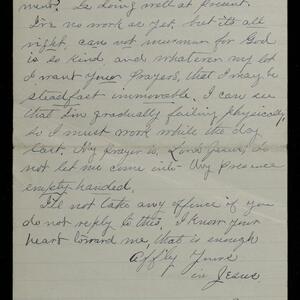 ment? Is doing well at present.
I've no work as yet, but its all
right, can not murmur for God
is so kind, and whatever my lot
I want your prayers, that I may be
steadfast immovable. I can see
that I'm gradually failing physically,
so I must work while the day
last. My prayer is, Lord Jesus, do
not let me come into Thy presence
empty handed.
I'll not take any offence if you
do not reply to this, I know your
heart toward me, that is enough
Aff'ly Yours
in Jesus